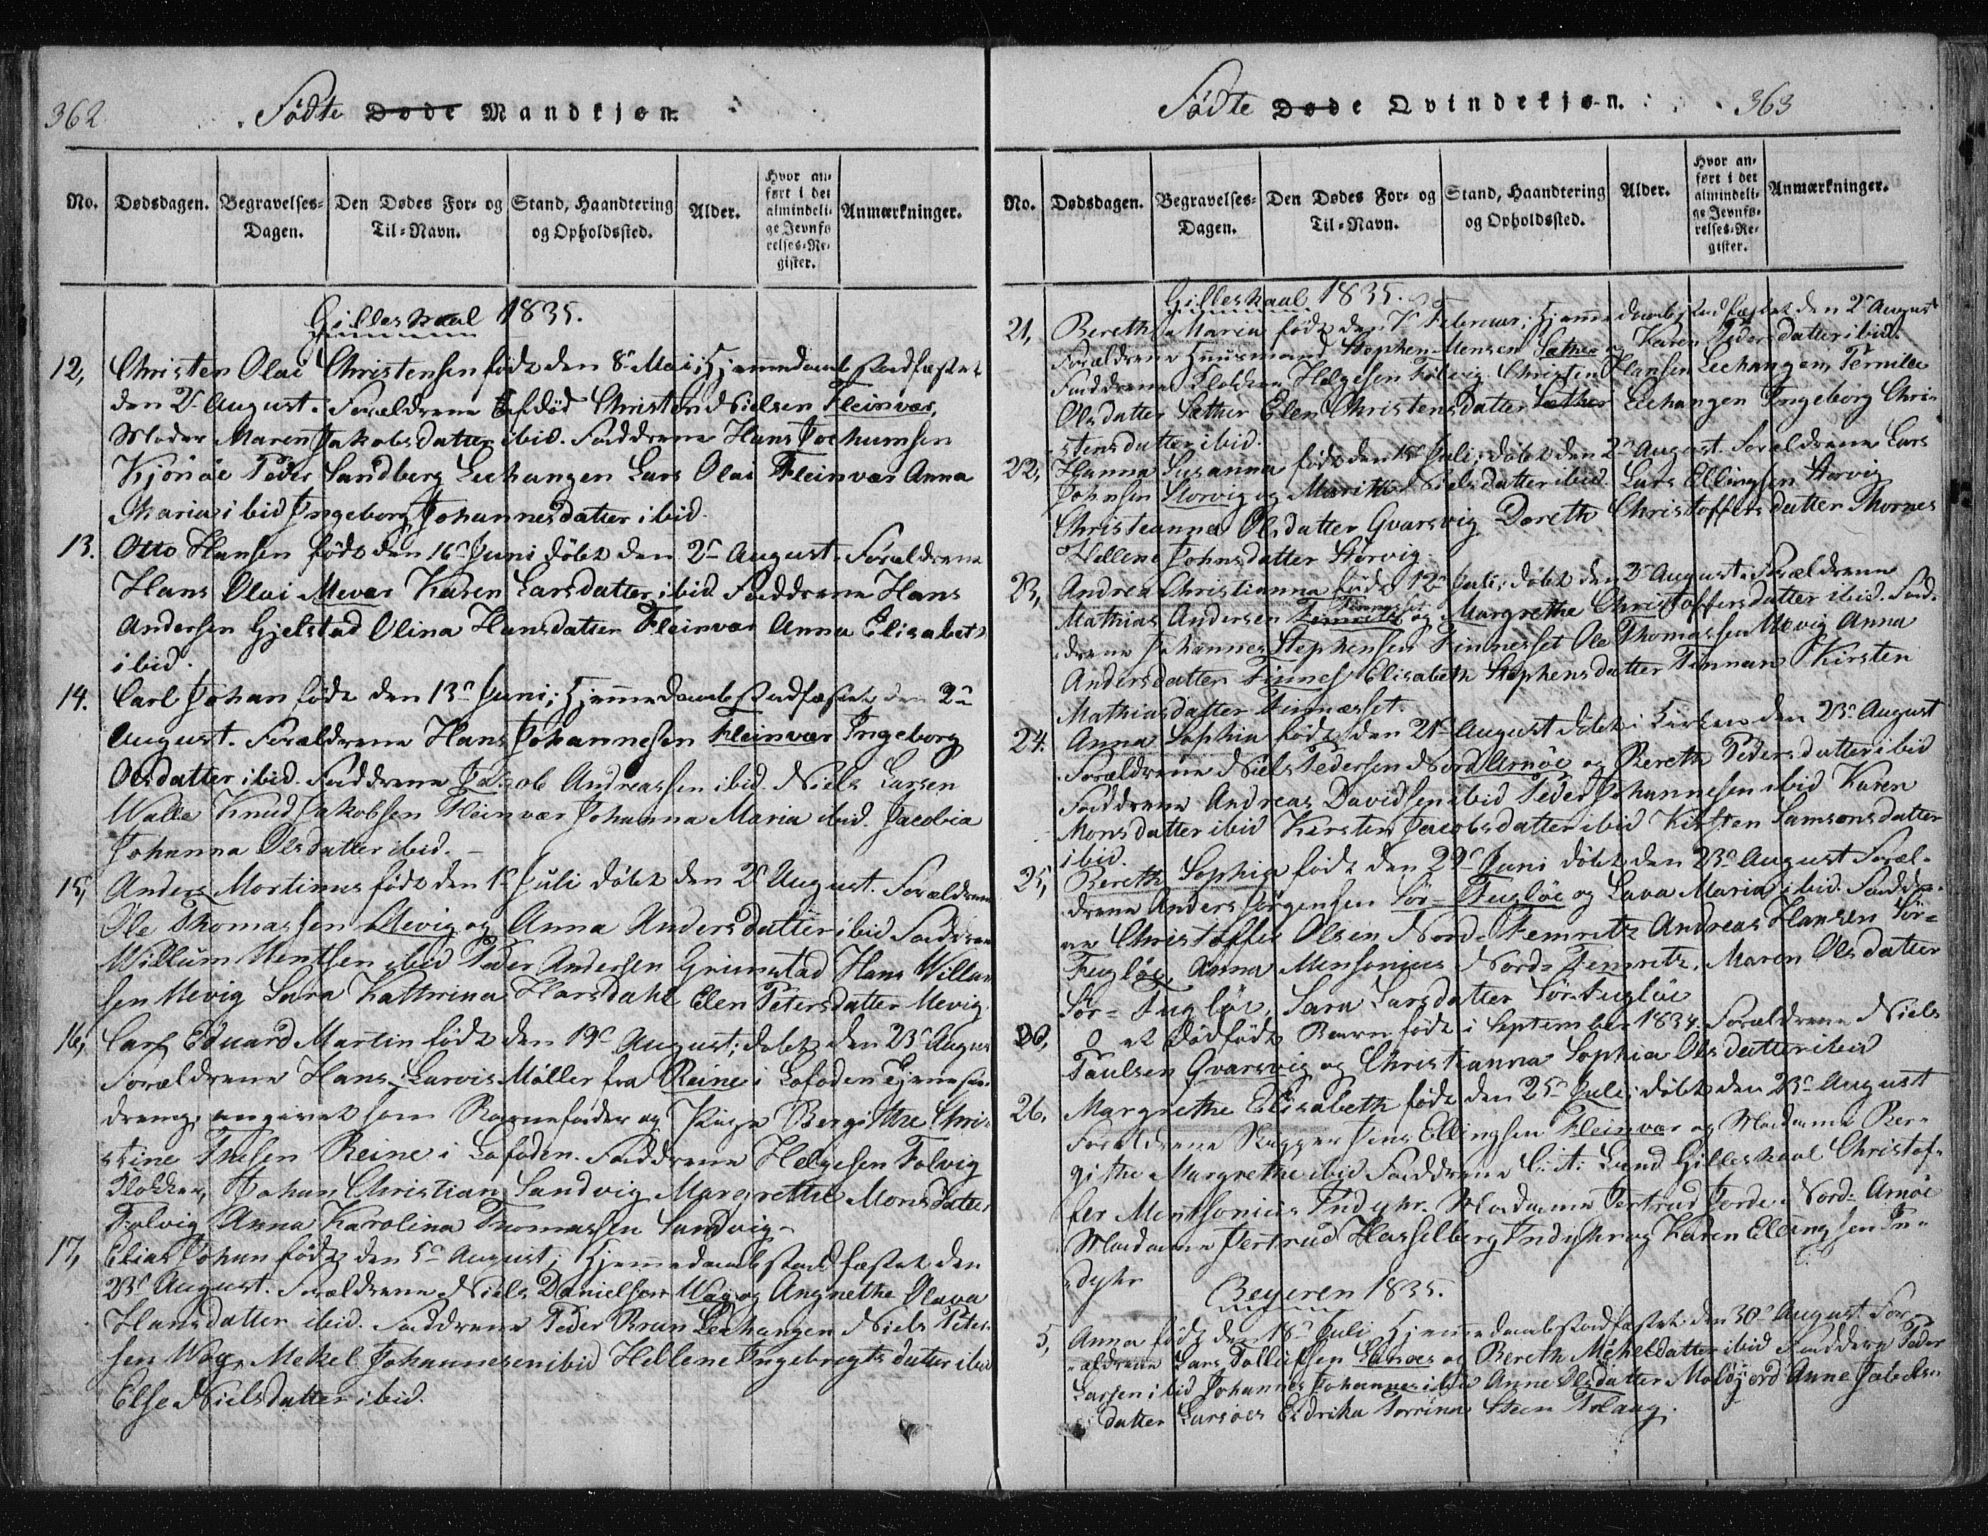 362
Födte Døde Mandkjøn.
No.
Dødsdagen.
Begravelses-
Dagen.
Den Dødes For- og
Til-Navn.
Stand, Haandtering
og Opholdssted.
Alder.
Hvor an-
ført i det
almindeli-
ge Jevnfø-
relses-Re-
gister.
Anmærkninger.
Gilleskaal 1835.
12, Christen Olai Christensen født den 8de Mai; Hjemmedaab stadfæstet
den 2den August. Forældrene Afdød Christen Nielsen Fleinvær,
Moder Maren Jakobsdatter ibid. Fadderne Hans Jochumsen
Kjönöe Peder Sandberg Lechangen Lars Olai Fleinvær Anna
Maria ibid Ingeborg Johannesdatter ibid.
13. Otto Hansen født den 16de Juni døbt den 2den August. Forældrene
Hans Olai Mevær Karen Larsdatter ibid Faddrene Hans
Andersen Gjelstad Olina Hansdatter Fleinvær Anna Elisabeth
ibid.
14. Carl Johan født den 13de Juni; Hjemmedaab stadfæstet den 2den
August. Forældrene Hans Johannesen Fleinvær Ingeborg
Olsdatter ibid. Faddrene Jakob Andreassen ibid. Niels Larsen
Walle Knud Jakobsen Fleinvær Johanna Maria ibid. Jacobia
Johanna Olsdatter ibid. –
15, Anders Mortinus født den 1de Juli døbt den 2den August. Forældrene
Ole Thomassen Mevig og Anna Andersdatter ibid Faddrene
Willum Hentsen ibid Peder Andersen Grimstad Hans Willum-
sen Mevig Sara Kattrina Horsdahl Elen Petersdatter Mevig.
16, Carl Eduard Martin født den 19de August; døbt den 23de August
Forældrene Hans Larvis Möller fra Reine i Lofoden Tjeneste-
dreng, angivet som Barnefader og Pige Bergitthe Chri-
stine Thesen Reine i Lofoden. Faddrene Helgesen Folvig
Klokker, Johan Christian Sandvig Margrethe Monsdatter
Folvig Anna Karolina Thomassen Sandvig –
17, Elias Johan født den 5de August; Hjemmedaab stadfæstet den
23de August. Forældrene Niels Danielsen Wag og Angnethe Olava
Hansdatter ibid. Faddrene Peder Brun Lechangen Niels Peter-
sen Wag, Mekel Johannesen ibid Hellene Ingebregtsdatter ibid
Else Nielsdatter ibid.
Födte Døde Qvindekjøn.
363
No.
Dødsdagen.
Begravelses-
Dagen.
Den Dødes For- og
Til-Navn.
Stand, Haandtering
og Opholdssted.
Alder.
Hvor an-
ført i det
almindeli-
ge Jevnfø-
relses-Re-
gister.
Anmærkninger.
Gilleskaal 1835.
21, Bereth Maria født den Februar; Hjemmedaab stadfæstet den 2den August
Forældrene Huusmand Stephen Monsen Sæther Karen Pedersdatter ibid.
Faddrene Klokker Helgesen Folvig Christen Hansen Lechangen Pernille
Olsdatter Sæther Elen Christensdatter Sæther Lechangen Ingeborg Chri-
stensdatter ibid.
22, Hanna Susanna født den 15de Juli; døbt den 2den August. Forældrene Lars
Johnsen Storvig og Marith Nielsdatter ibid Lars Ellingsen Storvig
Christeanna Olsdatter Gvarsvig Doreth Christoffersdatter Thornes
Hellene Johnsdatter Storvig.
23, Andrea Christianna født 12de Juli; døbt den 2den August. Forældrene
Mathias Andersen Femrits Finnesset og Margrethe Christoffersdatter ibid. Fad-
drene Johannes Stephensen Finnesset Ole Thomassen Mevig Anna
Andersdatter Finnes Elisabeth Stephensdatter Finnan Kirsten
Mathiasdatter Finnæsset.
24. Anna Sophia født den 21de August døbt i Kirken den 23de August
Forældrene Niels Pedersen Nord Arnöe og Bereth Pedersdatter ibid
Faddrene Andreas Davidsen ibid Peder Johannesen ibid Karen
Monsdatter ibid Kirsten Jacobsdatter ibid Kirsten Samsonsdatter
ibid.
25, Bereth Sophia født den 29de Juni døbt den 23de August Foræl-
drene Anders Jörgensen Sör-Fuglöe og Lava Maria ibid. Faddre-
ne Christoffer Olsen Nord-Femrits Andreas Hansen Sör-
Fuglöe Anna Monsonius Nord-Femrits. Maren Olsdatter
Sör-Fuglöe, Sara Larsdatter Sör-Fuglöe
et dödfödt Barn født i September 1834. Forældrene Niels
Paulsen Gvarsvig og Christianna Sophia Olsdatter ibid
26. Margrethe Elisabeth født den 25de Juli; døbt den 23de August
Forældrene Jens Ellingsen Fleinvær og Madame Ber-
githe Margrethe ibid Faddrene C: A: Lund Gilleskaal Christof-
fer Monsonius Indyhr. Madame Jertrud Jorde Nord-Arnöe
Madame Jertrud Hasselberg Indyhr og Karen Ellingsen In-
dyhr
Beyeren 1835.
5, Anna født den 18de Juli Hjemmedaab stadfæstet den 30de August For-
ældrene Lars Tollefsen Larsöes og Bereth Mekelsdatter ibid Faddere Peder
Larsen ibid Johannes Johannes ibid Anne Olsdatter Moldjord Anne Jakobs-
datter Larsöes Edrika Torrina Steen Tvlaug.